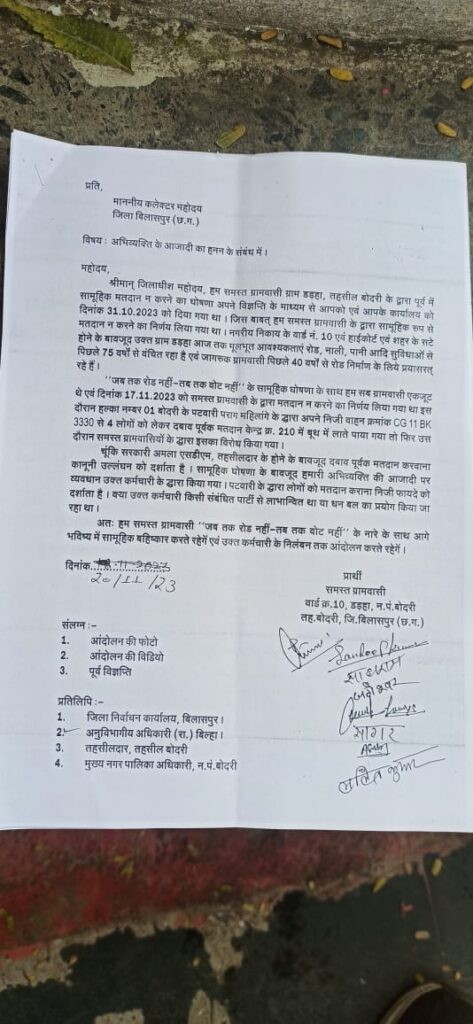 प्रति,
माननीय कलेक्टर महोदय
जिला बिलासपुर (छ.ग.)
विषय : अभिव्यक्ति के आजादी का हनन के संबंध में।
महोदय,
श्रीमान् जिलाधीश महोदय, हम समस्त ग्रामवासी ग्राम डड़हा, तहसील बोदरी के द्वारा पूर्व में
सामूहिक मतदान न करने का घोषणा अपने विज्ञप्ति के माध्यम से आपको एवं आपके कार्यालय को
दिनांक 31.10.2023 को दिया गया था। जिस बाबत् हम समस्त ग्रामवासी के द्वारा सामूहिक रूप से
मतदान न करने का निर्णय लिया गया था। नगरीय निकाय के वार्ड नं. 10 एवं हाईकोर्ट एवं शहर के सटे
होने के बावजूद उक्त ग्राम डड़हा आज तक मूलभूत आवश्यकताएं रोड, नाली, पानी आदि सुविधाओं से
पिछले 75 वर्षों से वंचित रहा है एवं जागरुक ग्रामवासी पिछले 40 वर्षों से रोड निर्माण के लिये प्रयासरत्
रहे हैं।
"जब तक रोड नहीं–तब तक वोट नहीं" के सामूहिक घोषणा के साथ हम सब ग्रामवासी एकजूट
थे एवं दिनांक 17.11.2023 को समस्त ग्रामवासी के द्वारा मतदान न करने का निर्णय लिया गया था इस
दौरान हल्का नम्बर 01 बोदरी के पटवारी पराग महिलांगे के द्वारा अपने निजी वाहन क्रमांक CG 11 BK
3330 से 4 लोगों को लेकर दबाव पूर्वक मतदान केन्द्र क्र. 210 में बूथ में लाते पाया गया तो फिर उस
दौरान समस्त ग्रामवासियों के द्वारा इसका विरोध किया गया।
चूंकि सरकारी अमला एसडीएम, तहसीलदार के होने के बावजूद दबाव पूर्वक मतदान करवाना
कानूनी उल्लंघन को दर्शाता है। सामूहिक घोषणा के बावजूद हमारी अभिव्यक्ति की आजादी पर
व्यवधान उक्त कर्मचारी के द्वारा किया गया। पटवारी के द्वारा लोगों को मतदान कराना निजी फायदे को
दर्शाता है। क्या उक्त कर्मचारी किसी संबंधित पार्टी से लाभान्वित था या धन बल का प्रयोग किया जा
रहा था।
अतः हम समस्त ग्रामवासी "जब तक रोड नहीं–तब तक वोट नहीं" के नारे के साथ आगे
भविष्य में सामूहिक बहिष्कार करते रहेगें एवं उक्त कर्मचारी के निलंबन तक आंदोलन करते रहेगें।
दिनांक
20/11/23
प्रार्थी
समस्त ग्रामवासी
वार्ड क्र.10, डड़हा, न.पं.बोदरी
तह.बोदरी, जि.बिलासपुर (छ.ग.)
संलग्न :–
1. आंदोलन की फोटो
2. आंदोलन की विडियो
3. पूर्व विज्ञप्ति
प्रतिलिपि :–
1. जिला निर्वाचन कार्यालय, बिलासपुर।
2. अनुविभागीय अधिकारी (रा.) बिल्हा।
3. तहसीलदार, तहसील बोदरी
4. मुख्य नगर पालिका अधिकारी, न.पं.बोदरी
सागर
ललित कुमार